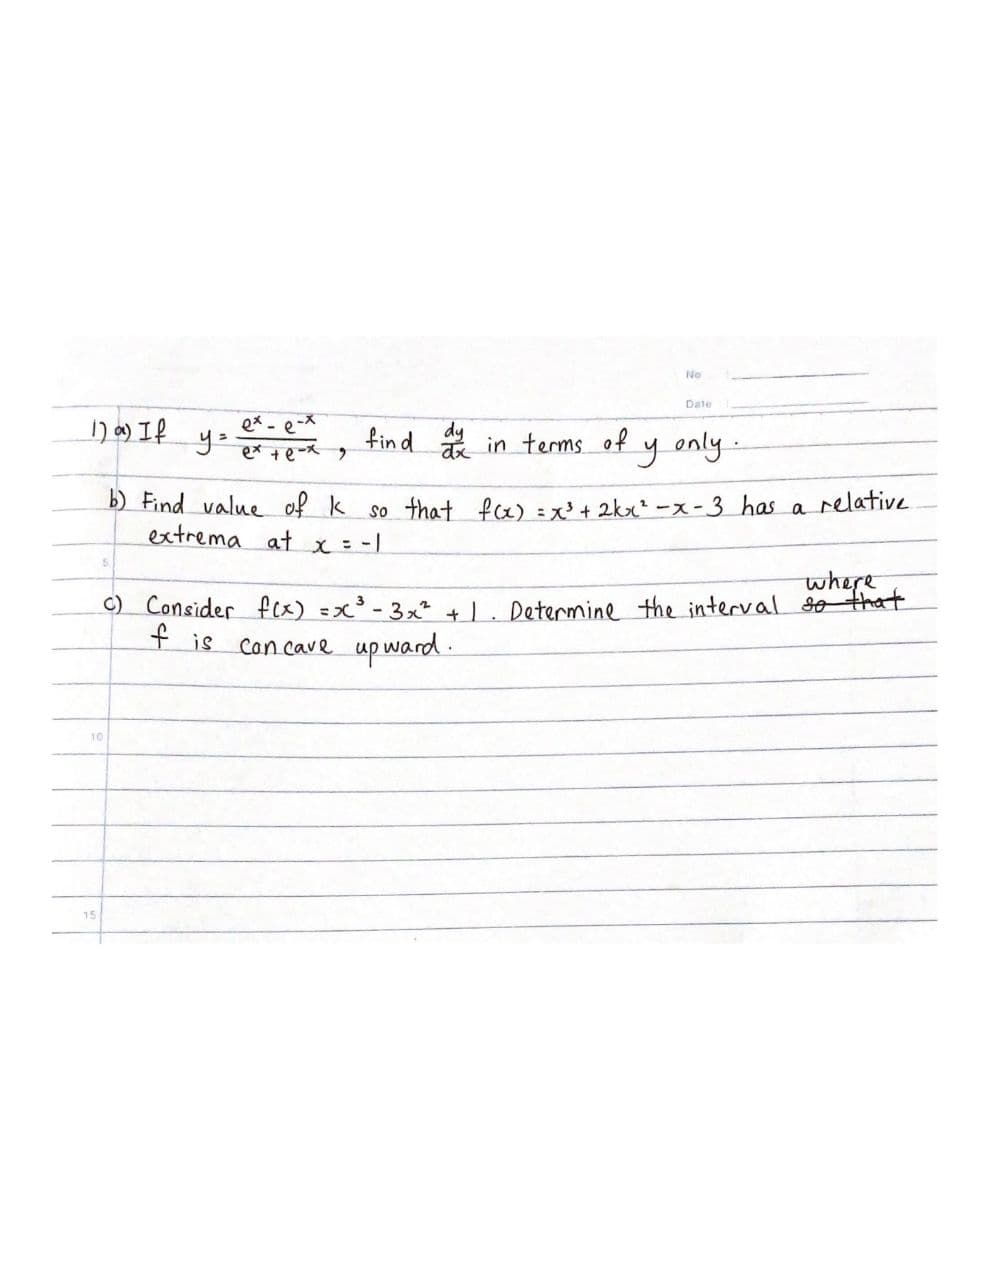 No
Date
1) a) If y = e^x - e^-x / e^x + e^-x , find dy/dx in terms of y only.
b) Find value of k so that f(x) = x³ + 2kx² - x - 3 has a relative
extrema at x = -1
5
where
c) Consider f(x) = x³ - 3x² + 1. Determine the interval so that
f is concave upward.
10
15